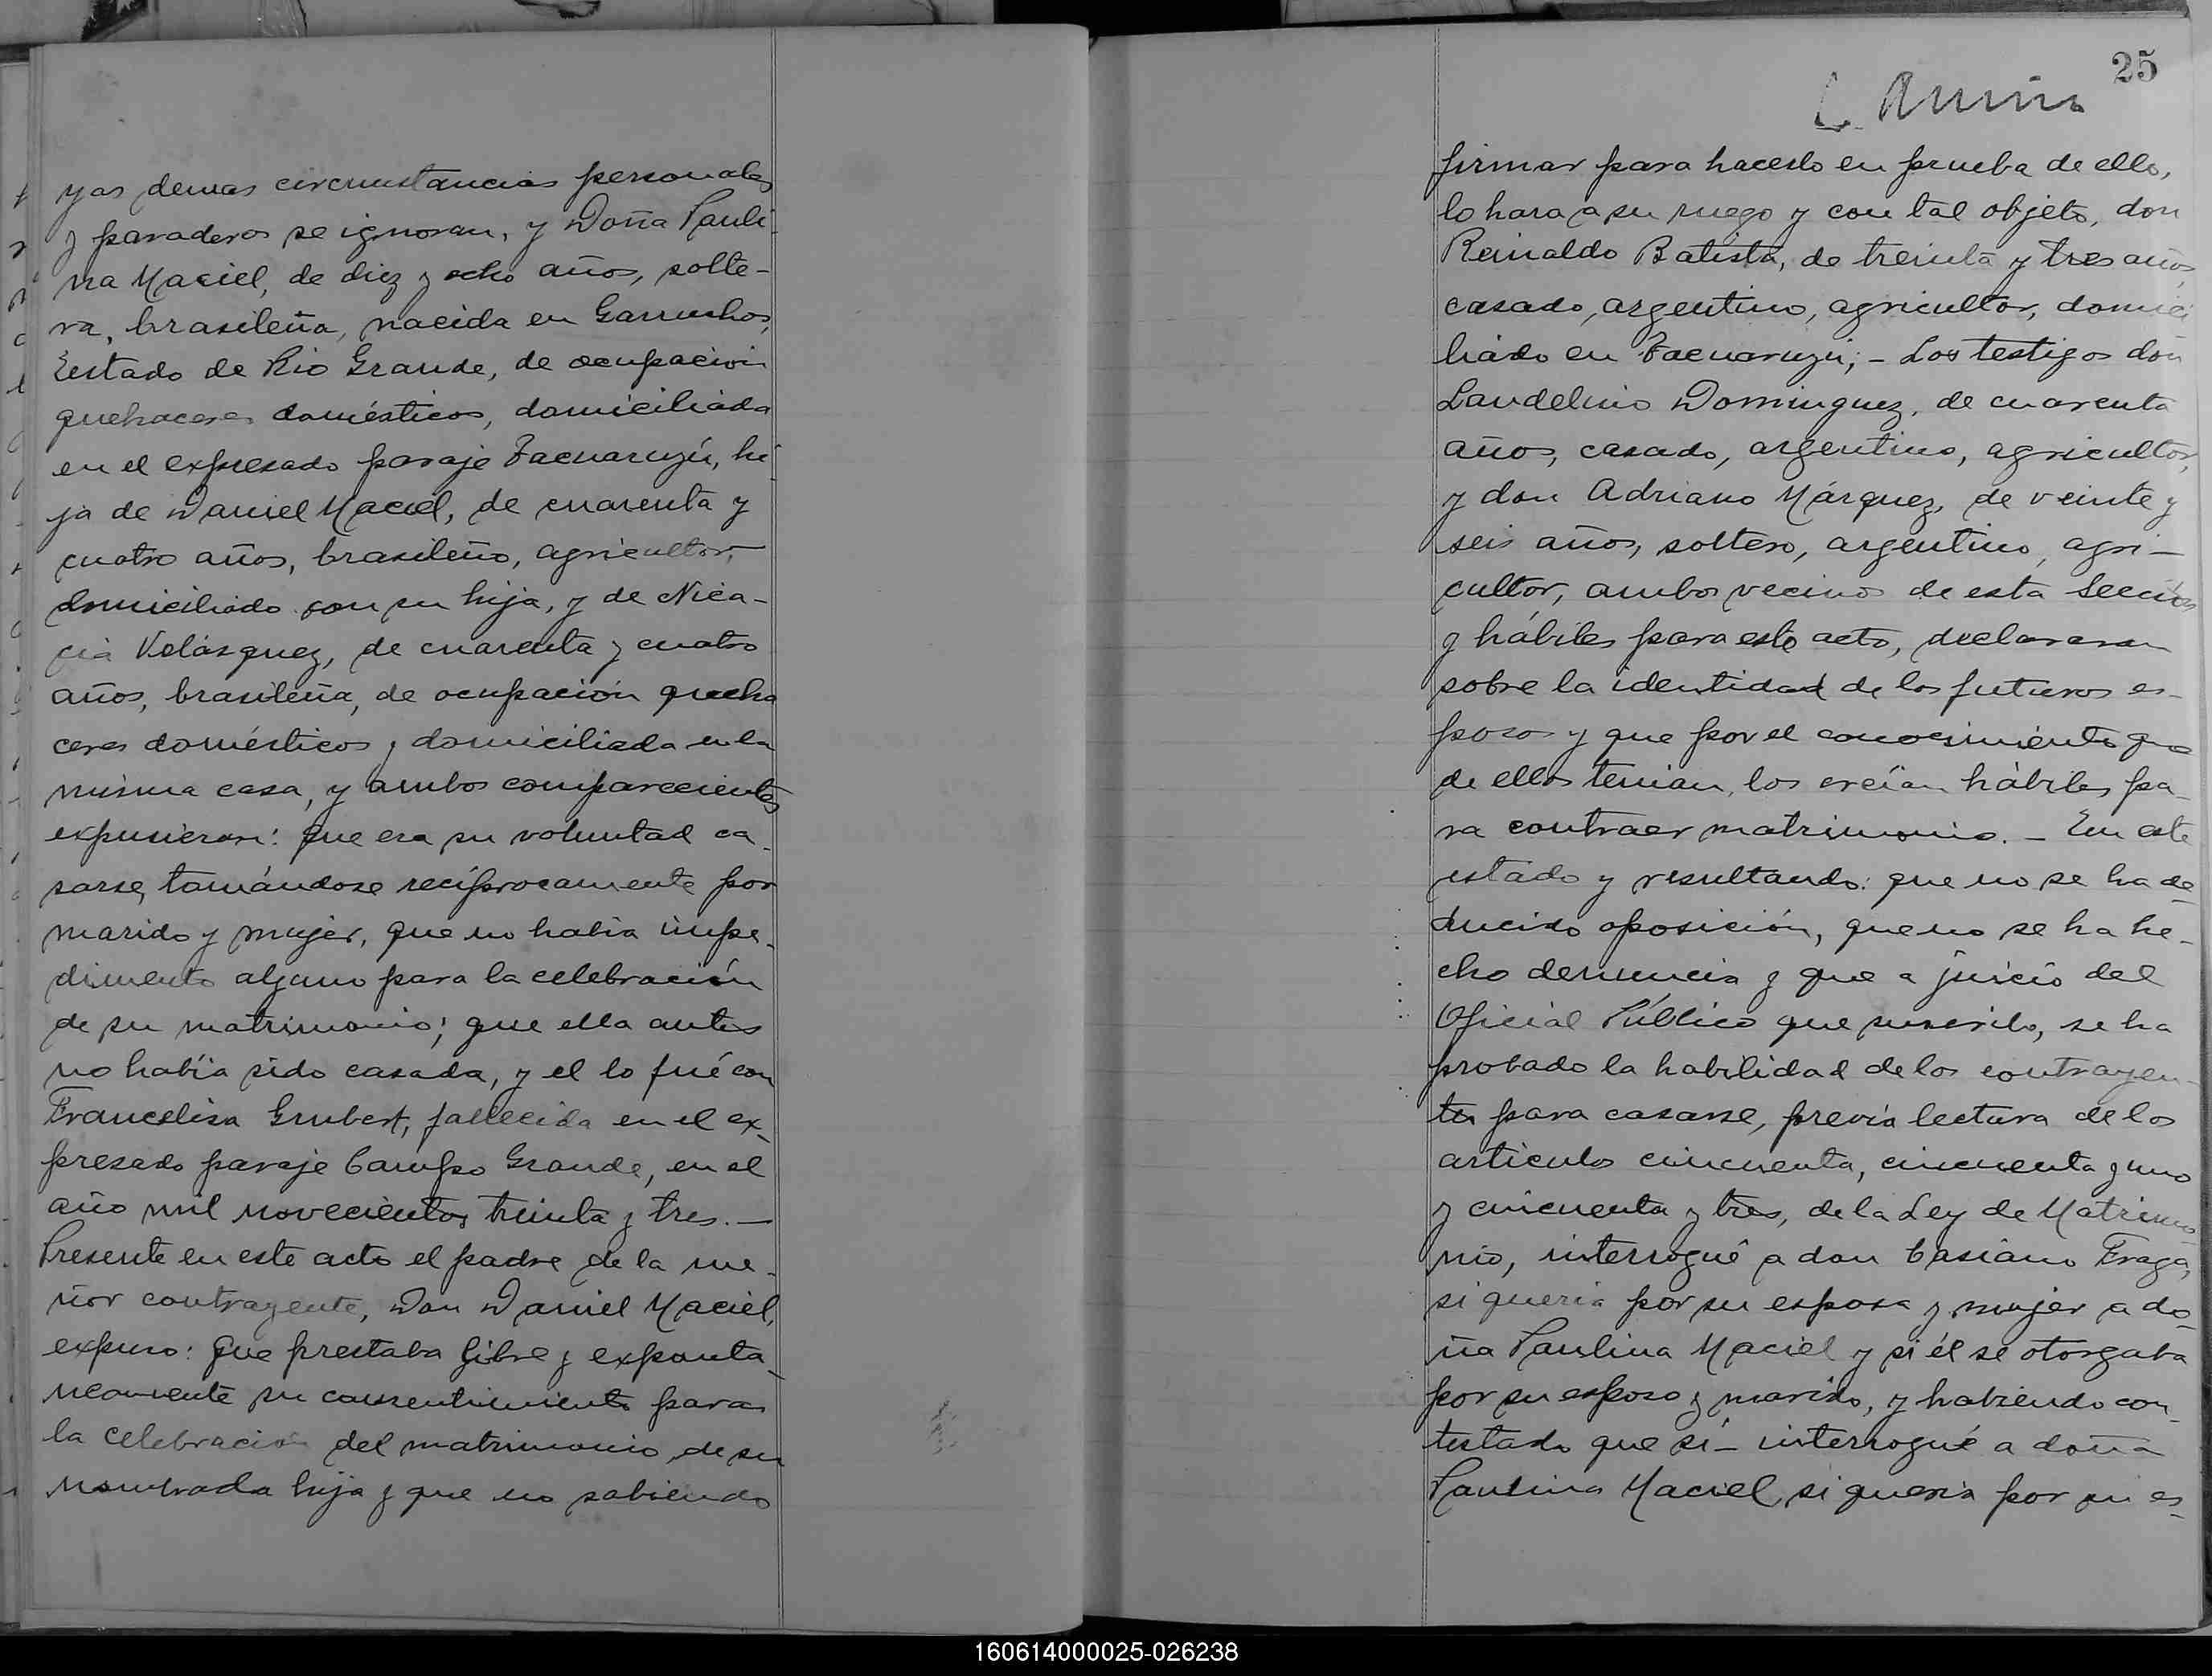 yas demas circunstancias personales
y paraderos se ignoran, y Doña Pauli-
na Maciel, de diez y ocho años, solte-
ra, brasileña, nacida en Garruchos,
Estado de Rio Grande, de ocupación
quehaceres domésticos, domiciliada
en el expresado paraje Tacuaruzú, hi-
ja de Daniel Maciel, de cuarenta y
cuatro años, brasileño, agricultor,
domiciliado con su hija, y de Nica-
cia Velásquez, de cuarenta y cuatro
años, brasileña, de ocupación queha
ceres domésticos y domiciliada en la
misma casa, y ambos comparecientes
expusieron: que era su voluntad ca-
sarse, tomándose recíprocamente por
marido y mujer, que no habia impe-
dimento alguno para la celebración
de su matrimonio; que ella antes
no había sido casada, y el lo fué con
Francelisa Grubert, fallecida en el ex-
presado paraje Campo Grande, en el
año mil novecientos treinta y tres.-
Presente en este acto el padre de la me-
nor contrayente, Don Daniel Maciel,
expuso: que prestaba libre y exponta-
neamente su consentimiento para
la celebración del matrimonio de su
nombrada hija y que no sabiendo
25
firmar para hacerlo en prueba de ello,
lo hara a su ruego y con tal objeto, don
Reinaldo Batista, de treinta y tres años,
casado, argentino, agricultor, domici
liado en Tacuaruzú;- Los testigos don
Laudelino Dominguez, de cuarenta
años, casado, argentino, agricultor,
y don Adriano Márquez, de veinte y
seis años, soltero, argentino, agri-
cultor, ambos vecinos de esta Sección
y hábiles para este acto, declararon
sobre la identidad de los futuros es-
posos y que por el conocimiento que
de ellos tenian, los creían hábiles pa-
ra contraer matrimonio.- En este
estado y resultando: que no se ha de-
ducido oposición, que no se ha he-
cho denuncia y que a juicio del
Oficial Público que suscribe, se ha
probado la habilidad de los contrayen-
tes para casarse, previa lectura de los
articulos cincuenta, cincuenta y uno
y cincuenta y tres, de la Ley de Matrimo-
nio, interrogué a don Casiano Fraga,
si queria por su esposa y mujer a do-
ña Paulina Maciel y si él se otorgaba
por su esposo y marido, y habiendo con-
testado que sí- interrogué a doña
Paulina Maciel, si queria por su es-
160614000025-026238